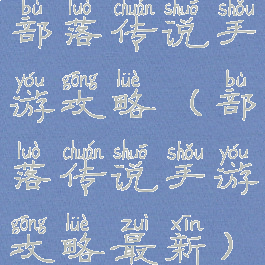 bù luò chuán shuō shǒu
部落传说手
yóu gōng lüè bù
游攻略（部
luò chuán shuō shǒu yóu
落传说手游
gōng lüè zuì xīn
攻略最新）